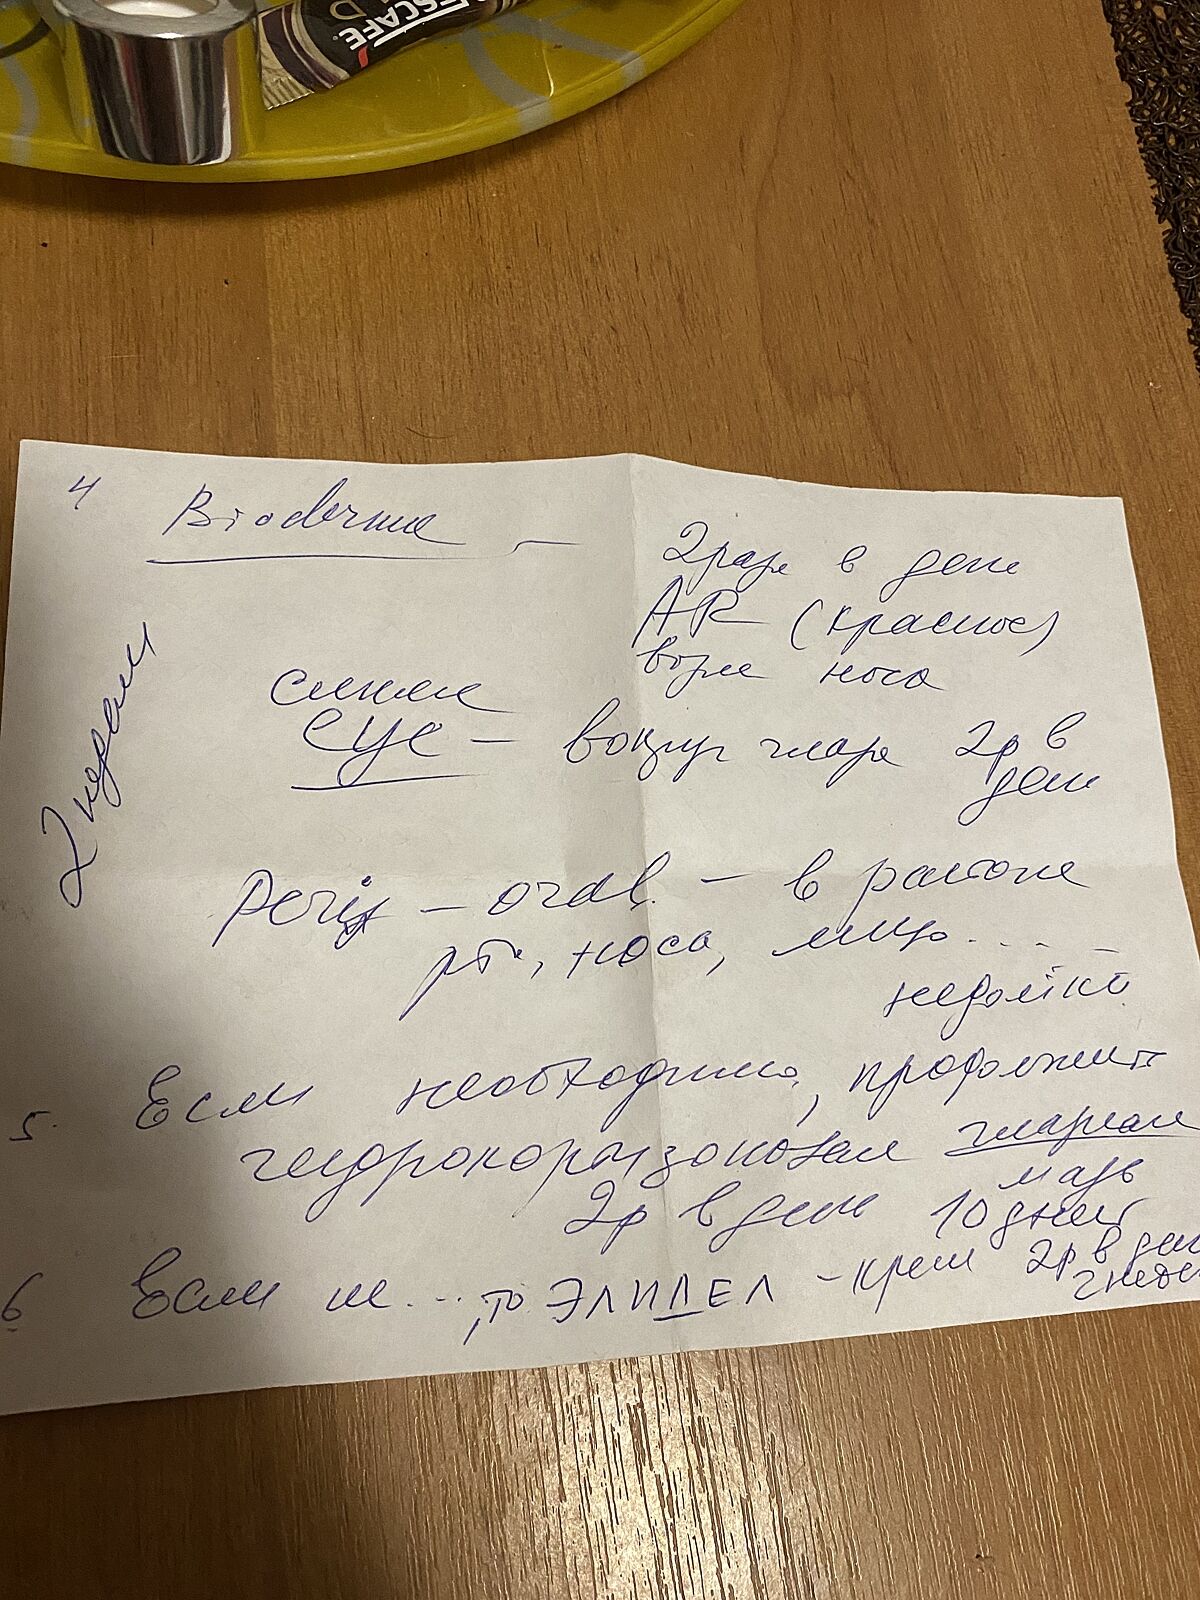 NESCAFÉ
4 Bioderma — 2 раза в день
AR (красное)
возле носа
2 недели
синяя
eye — вокруг глаз 2р в
день
Peri — oral. — в районе
рта, носа, лицо....
5. Если необходимо, продолжить
гидрокортизоновая глазная
мазь
2р в день 10 дней
6 Если не..., то ЭЛИДЕЛ - крем 2р в день
2 недели